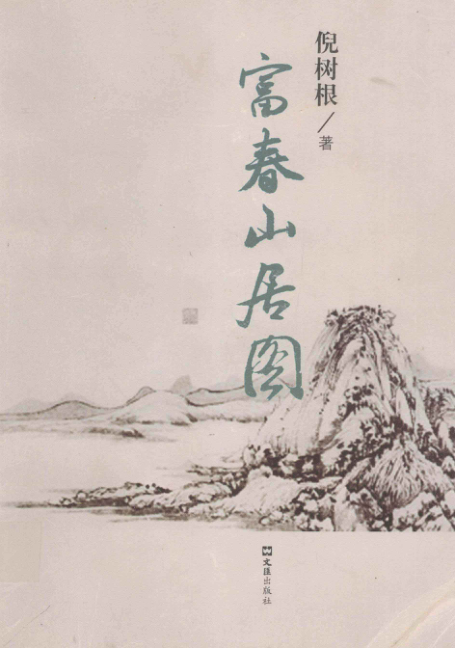 倪树根/著
富春山居图
文匯出版社